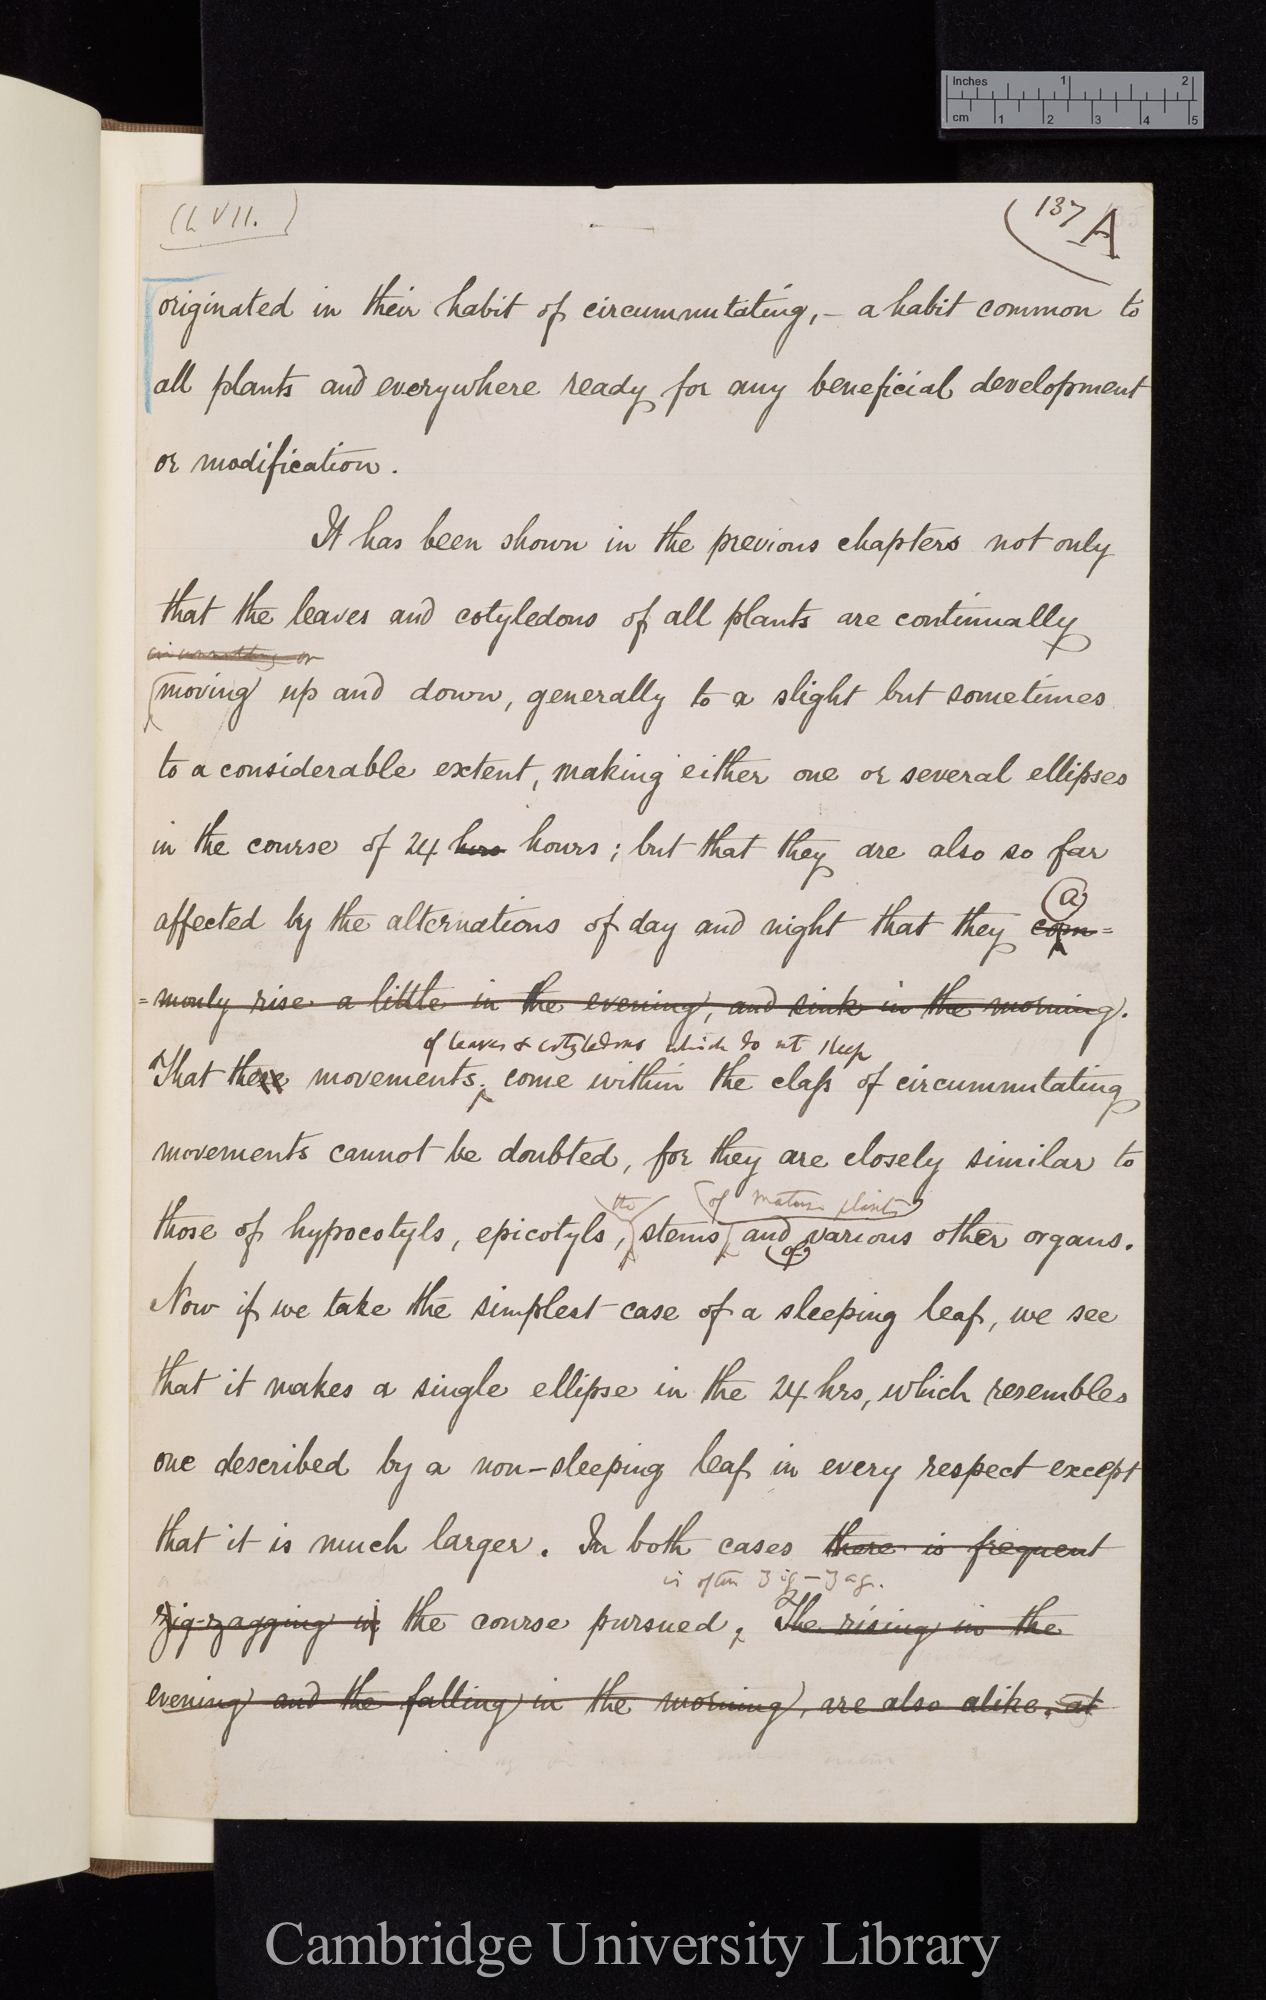 Inches 1 2
cm 1 2 3 4 5
(L VII.)
137 A
originated in their habit of circumnutating, – a habit common to
all plants and everywhere ready for any beneficial development
or modification.
It has been shown in the previous chapters not only
that the leaves and cotyledons of all plants are continually
circumnutating or
moving up and down, generally to a slight but sometimes
to a considerable extent, making either one or several ellipses
in the course of 24 hrs hours; but that they are also so far
(a)
affected by the alternations of day and night that they com=
=monly rise a little in the evening, and sink in the morning.
of leaves & cotyledons which do not sleep
That these movements, come within the class of circumnutating
movements cannot be doubted, for they are closely similar to
the of mature plants
those of hypocotyls, epicotyls, stems and various other organs.
of
Now if we take the simplest case of a sleeping leaf, we see
that it makes a single ellipse in the 24 hrs, which resembles
one described by a non-sleeping leaf in every respect except
that it is much larger. In both cases there is frequent
is often zig-zag.
zig-zagging in the course pursued, The rising in the
evening and the falling in the morning, are also alike. at
Cambridge University Library